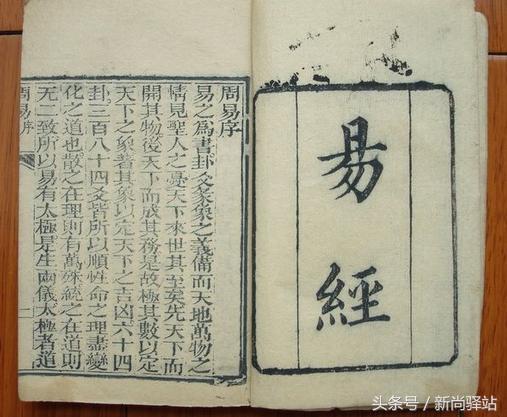 易經
周易序
易之為書卦爻彖象之義備而天地萬物之
情見聖人之憂天下來世其至矣先天下而
開其物後天下而成其務是故極其數以定
天下之象著其象以定天下之吉凶六十四
卦三百八十四爻皆所以順性命之理盡變
化之道也散之在理則有萬殊統之在道則
无二致所以易有太極是生兩儀太極者道
周易序
一
头条号 / 新尚驿站